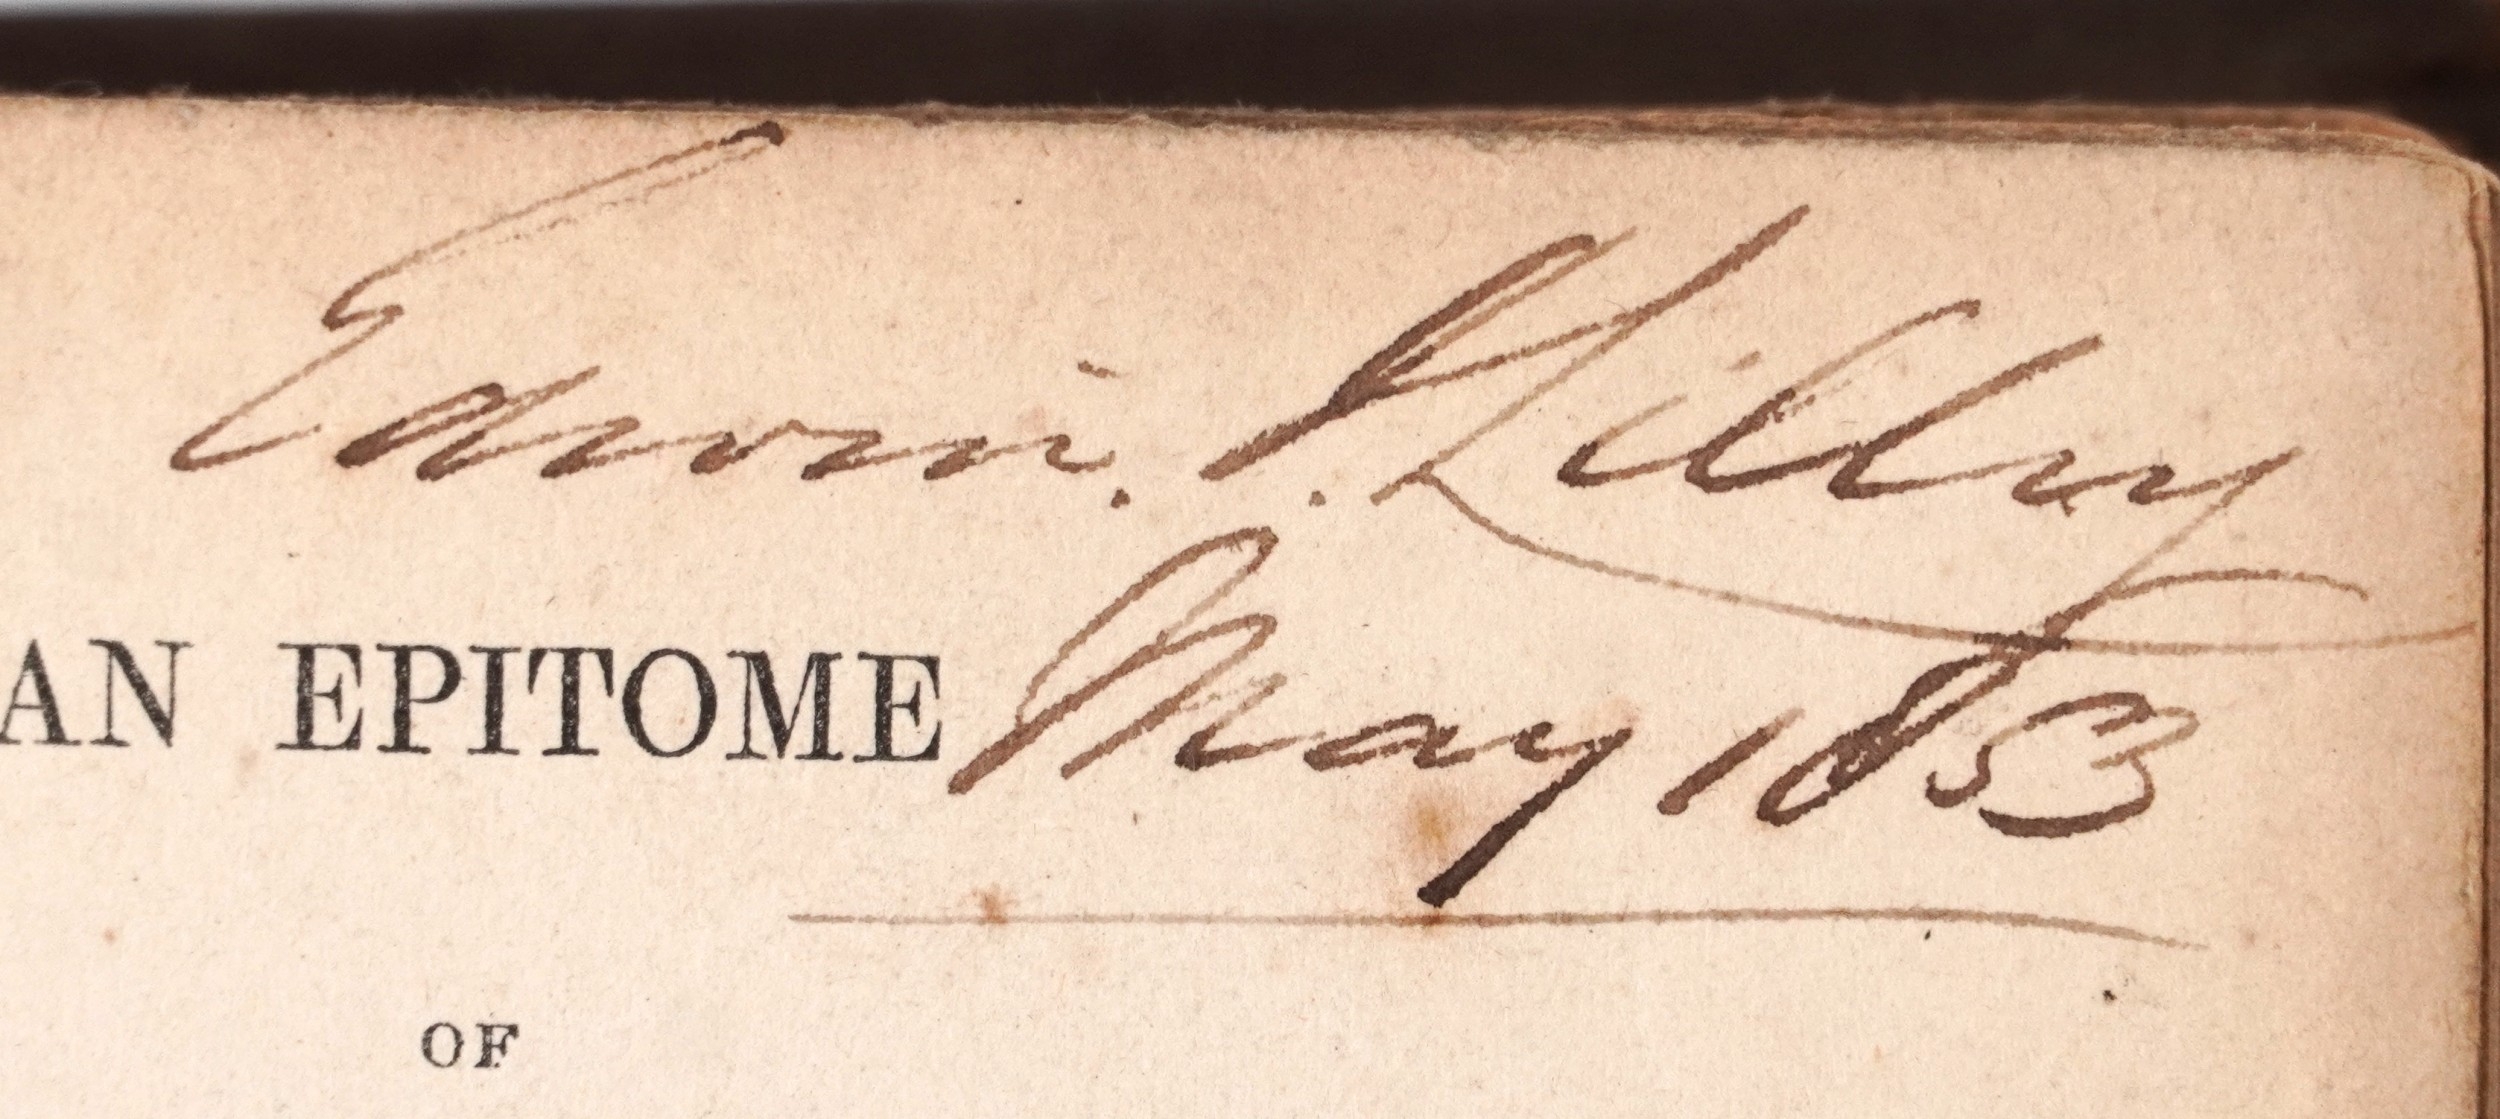 Edwin.
May 1853
AN EPITOME
OF